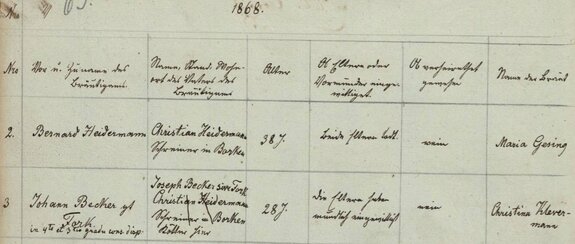 No
1868.
No
Vor u. Zuname des
Bräutigams.
Name, Stand, Wohn-
ort des Vaters des
Bräutigams
Alter
Ob Eltern oder
Vormünder einge-
williget.
Ob verheirathet
gewesen
Name der Braut
2.
Bernard Heidermann
Christian Heidermann
Schreiner in Borken
38 J.
beide Eltern todt.
nein
Maria Gesing
3
Johann Becker gt
Fork
in 4ten et
Joseph Becker sive Fork
Christian Heidermann
Schreiner in Borken
Kötter hier
28 J.
die Eltern haben
mündlich eingewilligt
nein
Christina Klever-
mann